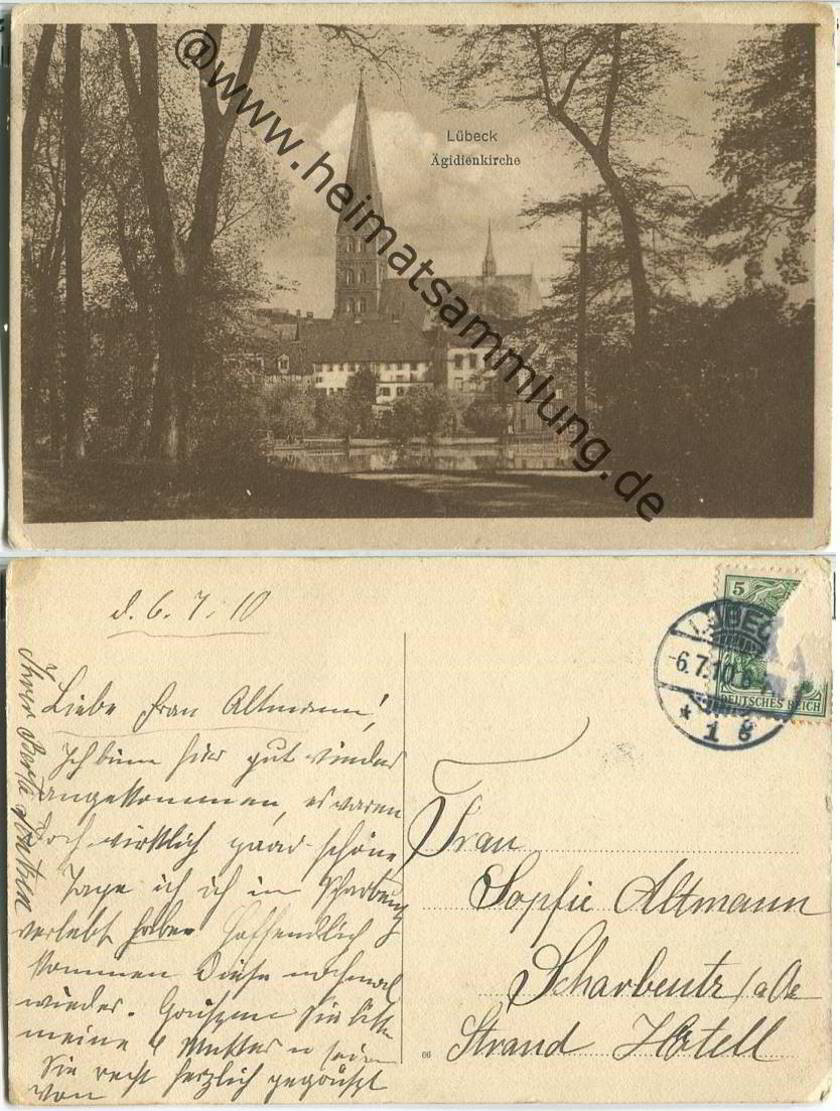 Lübeck
Ägidienkirche
@www.heimatsammlung.de
d. 6. 7. 10
Liebe Frau Altmann!
Ich bin hier gut wieder
angekommen, es waren
doch wirklich paar schöne
Tage ich ich in Scharbeutz
verlebt habe. Hoffendlich
kommen diese nochmal
wieder. Grüßen Sie bitte
meine Mutter u seien
Sie recht herzlich gegrüßt
von
Ihrer
5
LÜBECK
6.7.10.6
* 1 g
DEUTSCHES REICH
Frau
Sopfie Altmann
Scharbeutz / a Os
Strand Hotell
66